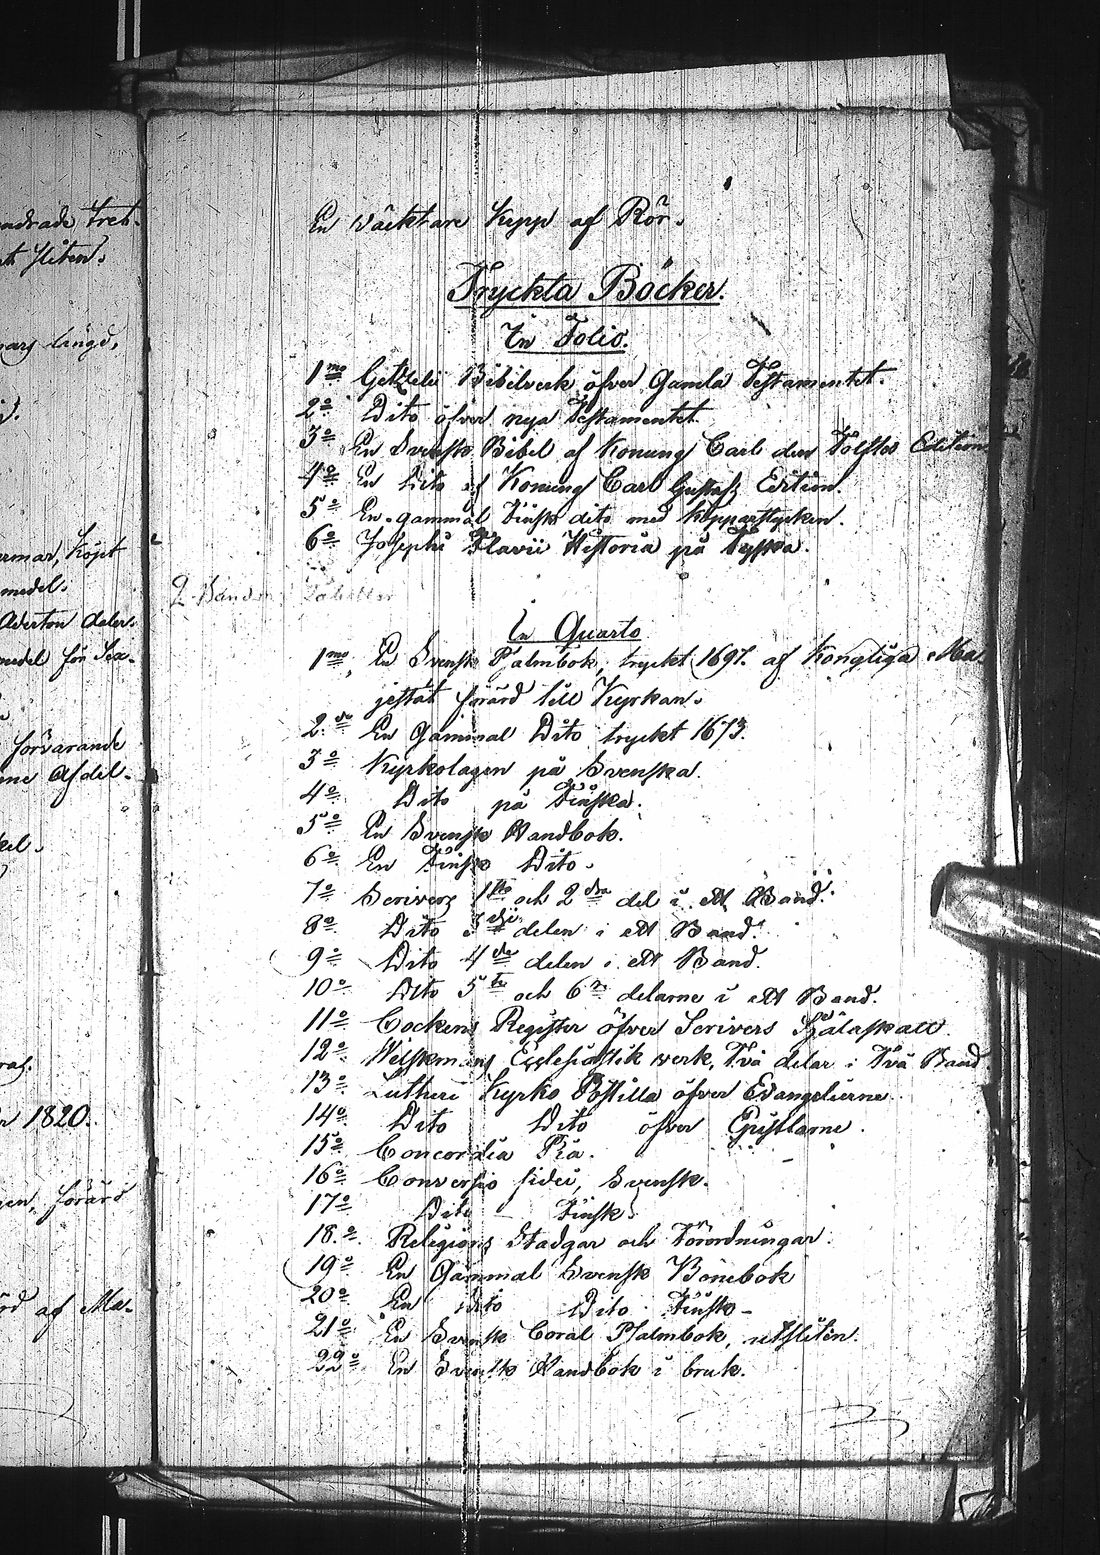 ndrade tret-
sliten.
längd,
armar, köpt
medel.
Aderton daler.
medel för
förvarande
afdel-
1820.
förärd
af Ma-
En väcktare Kepp af Rör.
Tryckta Böcker.
In Folio.
1mo Getzelii Bibelverk öfver Gamla Testamentet.
2o Dito öfver nya Testamentet
3o En Svensk Bibel af Konung Carl den Tolftes Edition
4o En Dito af Konung Carl Gustafs Edition.
5o En gammal Finsk dito med Kopparstycken.
6o Josephi Flavii Historia på Tyska.
2 Band
In Quarto
1mo En Svensk Psalmbok, tryckt 1697. af Kongliga Ma-
jestät förärd till Kyrkan.
2do En Gammal Dito tryckt 1673.
3o Kyrkolagen på Svenska.
4o Dito på Finska.
5o En Svensk Handbok.
6o En Finsk Dito.
7o Scrivers 1sta och 2dra del i ett Band.
8o Dito 3die delen i ett Band.
9o Dito 4de delen i ett Band.
10o Dito 5te och 6te delarne i ett Band.
11o Cockens Register öfver Scrivers Själaskatt
12o Wilskmans Ecclesiastik verk, Två delar i Två Band
13o Lutheri Kyrko Postilla öfver Evangelierne
14o Dito Dito öfver Epistlarne.
15o Concordia Pia.
16o Conversio fidei, Svensk.
17o Dito Finsk.
18o Religions Stadgar och Förordningar.
19o En Gammal Svensk Bönebok
20o En Dito Dito Finsk-
21o En Svensk Coral Psalmbok, utsliten.
22o En Svensk Handbok i bruk.